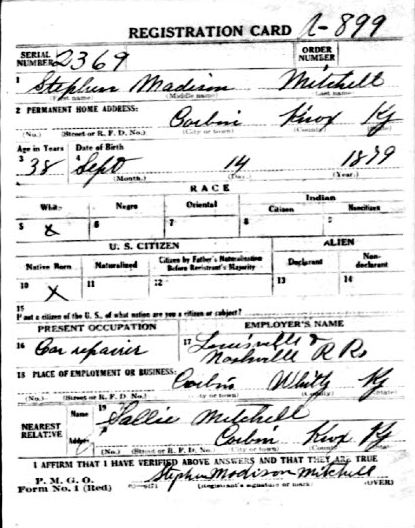 REGISTRATION CARD A-899
SERIAL NUMBER 2369 ORDER NUMBER
1 Stephen Madison Mitchell
(First name) (Middle name) Last name
2 PERMANENT HOME ADDRESS: Corbin Knox Ky
(No.) (Street or R. F. D. No.) (City or town) (County) (State)
Age in Years Date of Birth
3 38 4 Sept 14 1879
(Month.) (Day.) (Year.)
RACE
White Negro Oriental Indian
Citizen Noncitizen
5 x 6 7 8 9
U. S. CITIZEN ALIEN
Native Born Naturalized Citizen by Father's Naturalization Before Registrant's Majority Declarant Non-declarant
10 x 11 12 13 14
15
If not a citizen of the U. S., of what nation are you a citizen or subject?
PRESENT OCCUPATION EMPLOYER'S NAME
16 Car repairer 17 Louisville &
Nashville R Rs
18 PLACE OF EMPLOYMENT OR BUSINESS: Corbin Whitly Ky
(No.) (Street or R. F. D. No.) (City or town) (County) (State)
NEAREST RELATIVE Name 19 Sallie Mitchell
Address Corbin Knox Ky
(No.) (Street or R. F. D. No.) (City or town) (County) (State)
I AFFIRM THAT I HAVE VERIFIED ABOVE ANSWERS AND THAT THEY ARE TRUE
P. M. G. O.
Form No. 1 (Red) Stephen Madison Mitchell
(Registrant's signature or mark) (OVER)